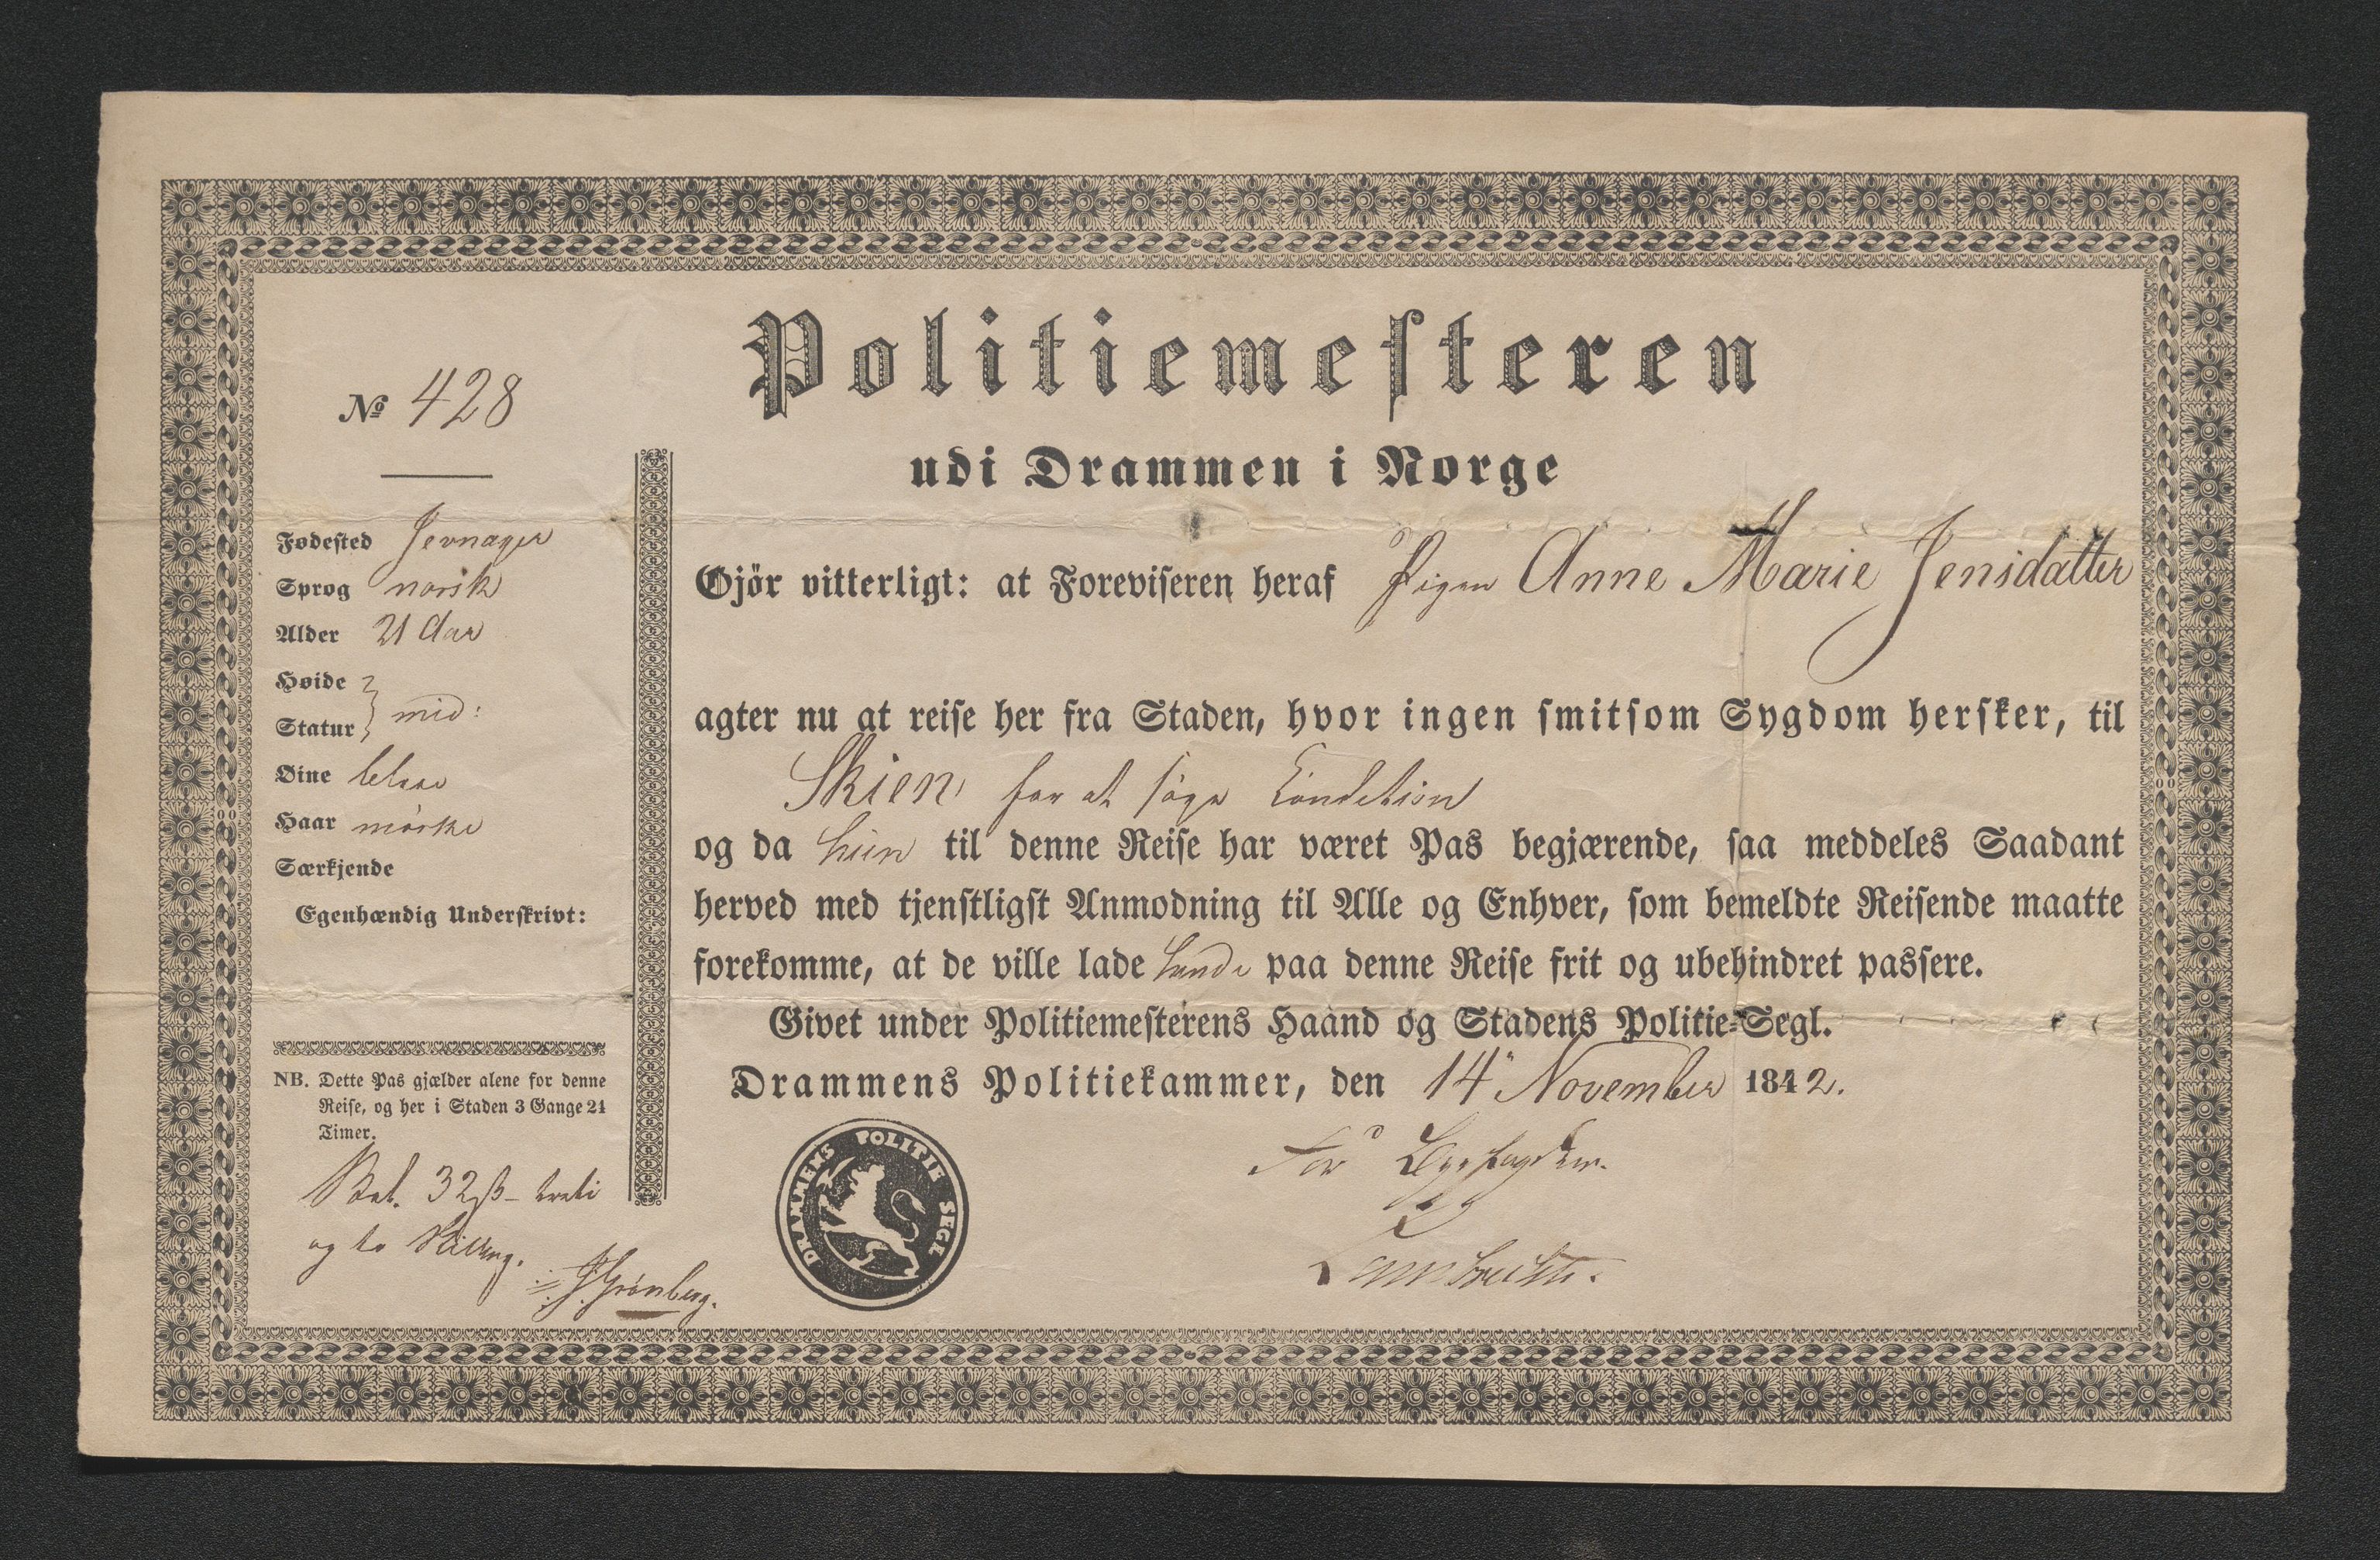 Politiemesteren
udi Drammen i Norge
No 428
Fødested Jevnager
Sprog norsk
Alder 21 Aar
Høide
Statur } mid:
Øine blaae
Haar mørke
Særkjende
Egenhændig Underskrivt:
NB. Dette Pas gjælder alene for denne
Reise, og her i Staden 3 Gange 24
Timer.
Bet. 32 ß - treti
og to Skilling.
Grönberg.
Gjör vitterligt: at Foreviseren heraf Pigen Anne Marie Jensdatter
agter nu at reise her fra Staden, hvor ingen smitsom Sygdom hersker, til
Skien for at søge Condition
og da hun til denne Reise har været Pas begjærende, saa meddeles Saadant
herved med tjenstligst Anmodning til Alle og Enhver, som bemeldte Reisende maatte
forekomme, at de ville lade hende paa denne Reise frit og ubehindret passere.
Givet under Politiemesterens Haand og Stadens Politie-Segl.
Drammens Politiekammer, den 14 November 1842.
DRAMMENS POLITIE SEGL
For
Lambrechts.